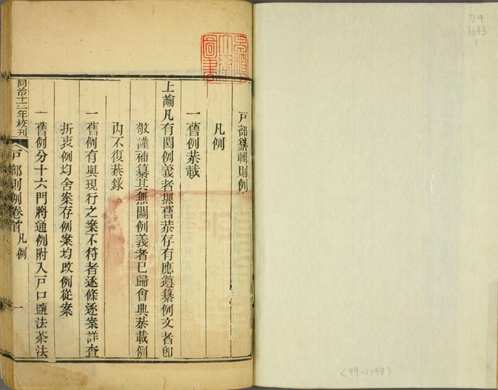 戶部纂輯則例
凡例
一舊例恭載
上諭凡有關例義者無舊恭存有應遵纂例文者卽
敬謹補纂其無關例義者已歸會典恭載例
內不復恭錄
一舊例有與現行之案不符者逐條逐案詳查
折衷例均舍案存例案均改例從案
一舊例分十六門將通例附入戶口鹽法茶法
同治十二年校刊
戶部則例卷首
凡例
一